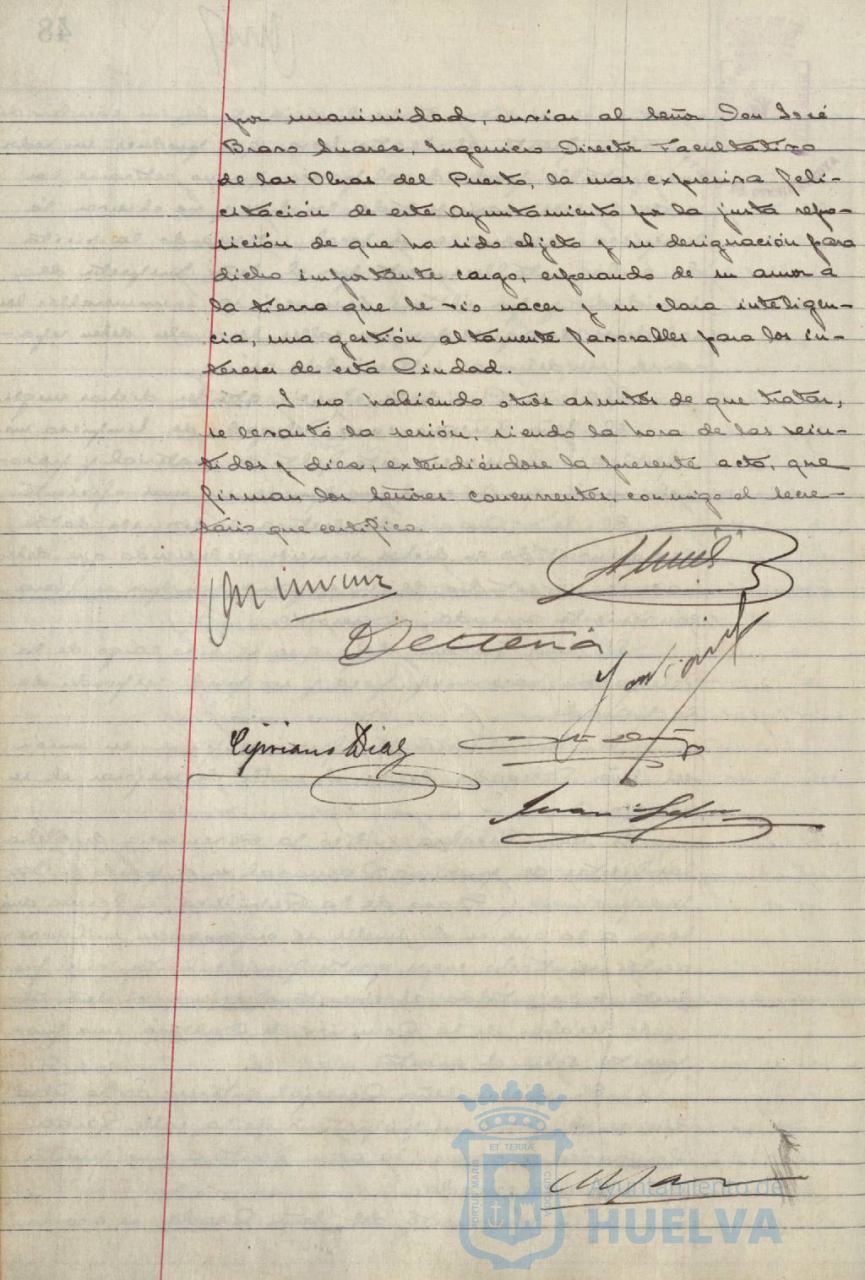 por unanimidad, enviar al Señor Don José
Bravo Suarez, Ingeniero Director Facultativo
de las Obras del Puerto, la mas expresiva feli-
citación de este Ayuntamiento por la justa repo-
sición de que ha sido objeto y su designación para
dicho importante cargo, esperando de su amor a
la tierra que le vio nacer y su clara inteligen-
cia, una gestión altamente favorables para los in-
tereses de esta Ciudad.
I no habiendo otros asuntos de que tratar,
se levantó la sesión, siendo la hora de las vein-
tidos y diez, extendiéndose la presente acto, que
firman los Señores concurrentes, conmigo el secre-
tario que certifico.
Cipriano Diaz
Juan
ET TERRÆ
PORTUS MARIS
CUSTODIA
Ayuntamiento de
HUELVA
48